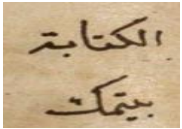 الكتابة
بيتمك